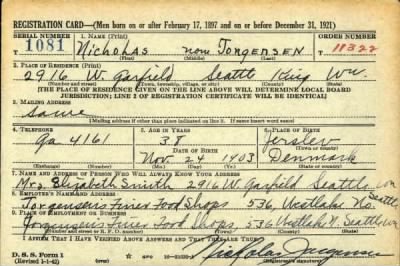 REGISTRATION CARD—(Men born on or after February 17, 1897 and on or before December 31, 1921)
SERIAL NUMBER 1. NAME (Print) ORDER NUMBER
T 1081 Nicholas none Jorgensen 11322
(First) (Middle) (Last)
2. PLACE OF RESIDENCE (Print)
2916 W. Garfield Seattle King Wn.
(Number and street) (Town, township, village, or city) (County) (State)
[THE PLACE OF RESIDENCE GIVEN ON THE LINE ABOVE WILL DETERMINE LOCAL BOARD
JURISDICTION; LINE 2 OF REGISTRATION CERTIFICATE WILL BE IDENTICAL]
3. MAILING ADDRESS
Same
[Mailing address if other than place indicated on line 2. If same insert word same]
4. TELEPHONE 5. AGE IN YEARS 6. PLACE OF BIRTH
Ga 4161 38 Jerslev
DATE OF BIRTH (Town or county)
Nov. 24 1903 Denmark
(Exchange) (Number) (Mo.) (Day) (Yr.) (State or country)
7. NAME AND ADDRESS OF PERSON WHO WILL ALWAYS KNOW YOUR ADDRESS
Mrs Elizabeth Smith 2916 W. Garfield Seattle, Wn
8. EMPLOYER'S NAME AND ADDRESS
Jorgensens Finer Food Shops, 536, Westlake No. Seattle,
9. PLACE OF EMPLOYMENT OR BUSINESS
Jorgensens Finer Food Shops, 536 Westlake N. Seattle Wn
(Number and street or R. F. D. number) (Town) (County) (State)
I AFFIRM THAT I HAVE VERIFIED ABOVE ANSWERS AND THAT THEY ARE TRUE.
D. S. S. Form 1
(Revised 1-1-42) (over) Nicholas Jorgensen